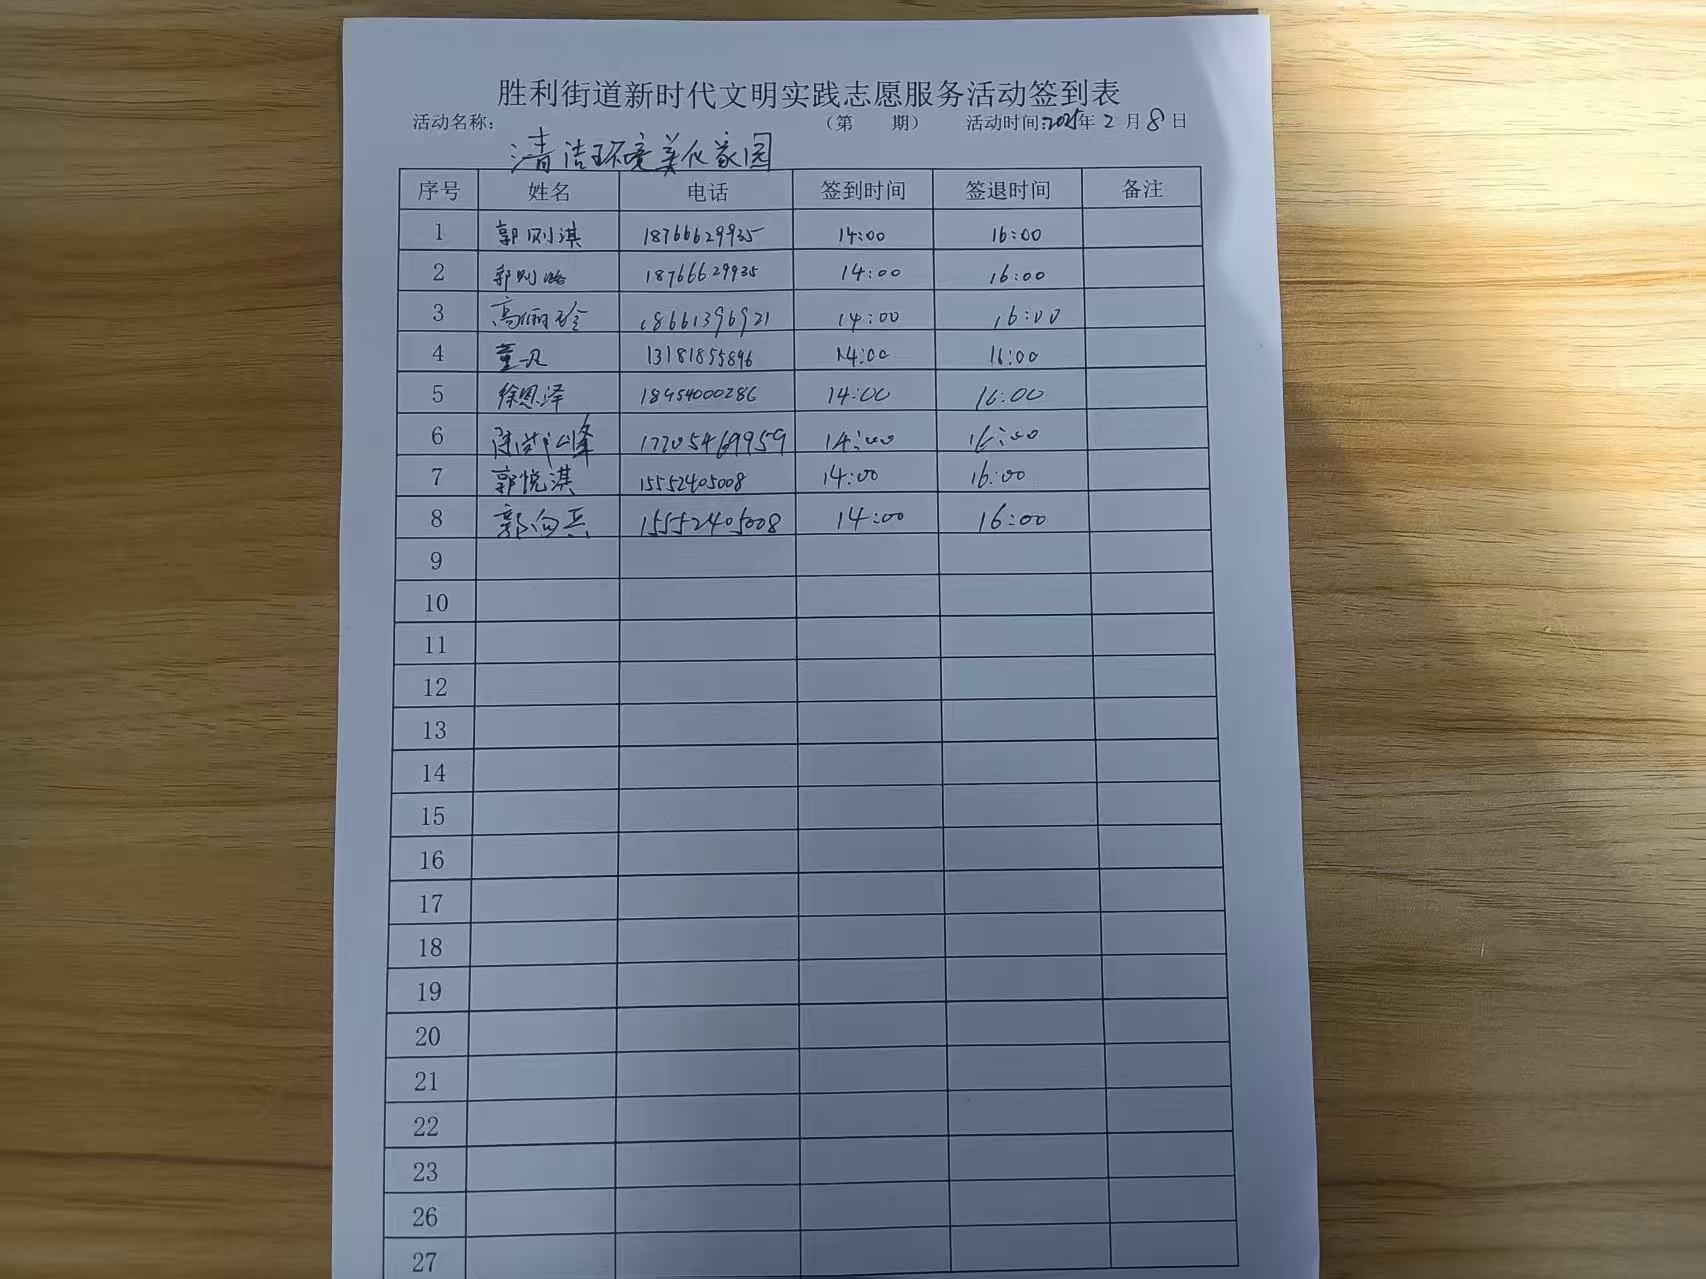 胜利街道新时代文明实践志愿服务活动签到表
活动名称: （第 期） 活动时间:2025年2月8日
清洁环境美化家园
序号 姓名 电话 签到时间 签退时间 备注
1 郭则淇 18766629935 14:00 16:00
2 郭则潞 18766629935 14:00 16:00
3 高俪珍 18661396921 14:00 16:00
4 董凡 13181855896 14:00 16:00
5 徐恩泽 18954000286 14:00 16:00
6 陈 峰 17705469959 14:00 16:00
7 郭悦淇 15552405008 14:00 16:00
8 郭向兵 15552405008 14:00 16:00
9
10
11
12
13
14
15
16
17
18
19
20
21
22
23
26
27